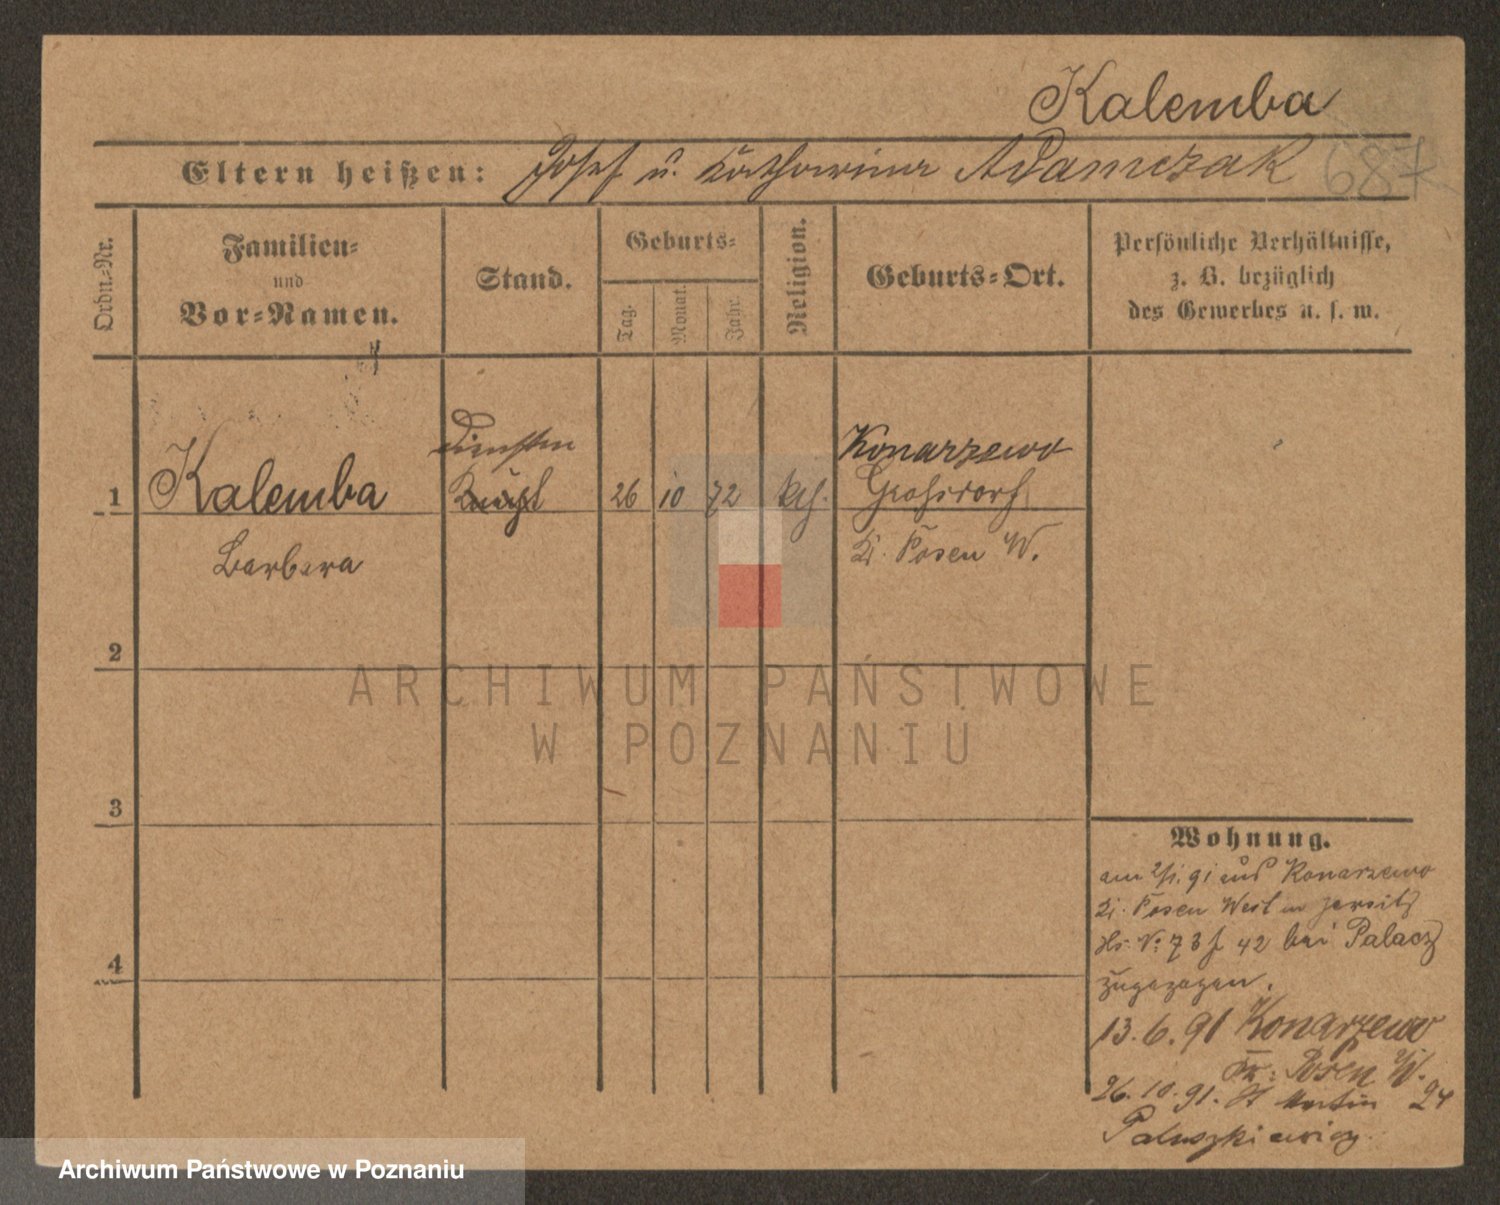 Kalemba
Eltern heißen: Josef u. Katharina Adamczak 687
Ordn.-Nr.
Familien-
und
Vor-Namen.
Stand.
Geburts-
Tag.
Monat.
Jahr.
Religion.
Geburts-Ort.
Persönliche Verhältnisse,
z. B. bezüglich
des Gewerbes u. s. w.
1
Kalemba
Barbara
26
10
72
kth.
Konarzewo
Grossdorf
Kr. Posen W.
2
3
4
Wohnung.
am 2/1. 91 aus Konarzewo
Kr. Posen West in Jersitz
No: 73 f 42 bei Palacz
zugezogen.
13. 6. 91 Konarzewo
Kr: Posen W.
26. 10. 91. St Martin 24
Paluszkiewicz
ARCHIWUM PAŃSTWOWE
W POZNANIU
Archiwum Państwowe w Poznaniu